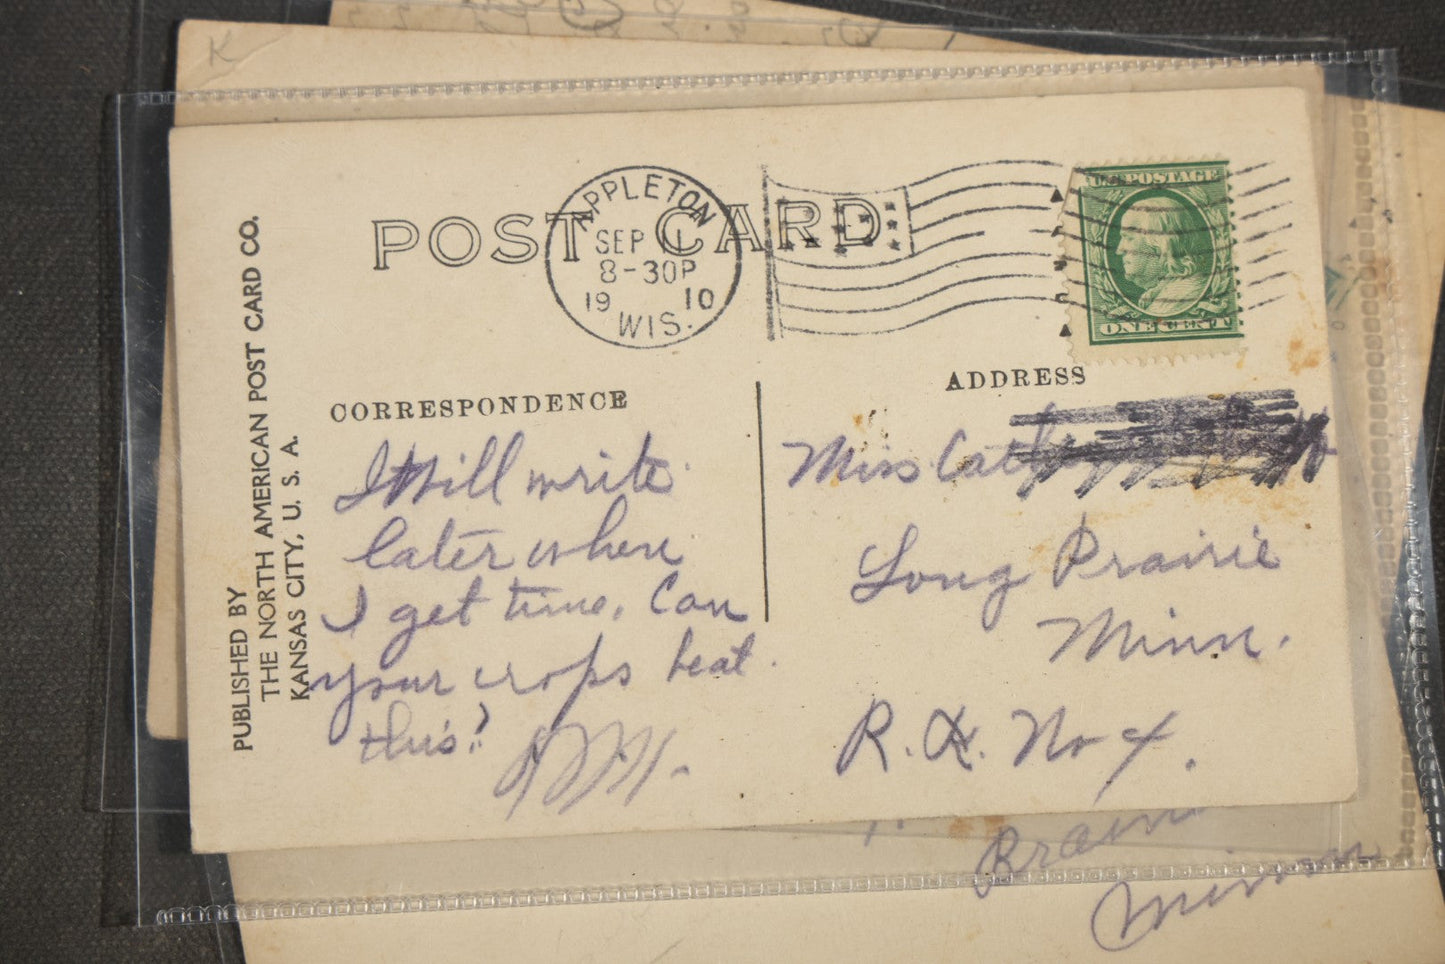 K
POST CARD
APPLETON
SEP 1
8-30P
19 10
WIS.
U.S. POSTAGE
ONE CENT
PUBLISHED BY
THE NORTH AMERICAN POST CARD CO.
KANSAS CITY, U. S. A.
CORRESPONDENCE
I Will write
later when
I get time. Can
your crops beat
this?
ADDRESS
Miss
Long Prairie
Minn.
R. R. No 4.